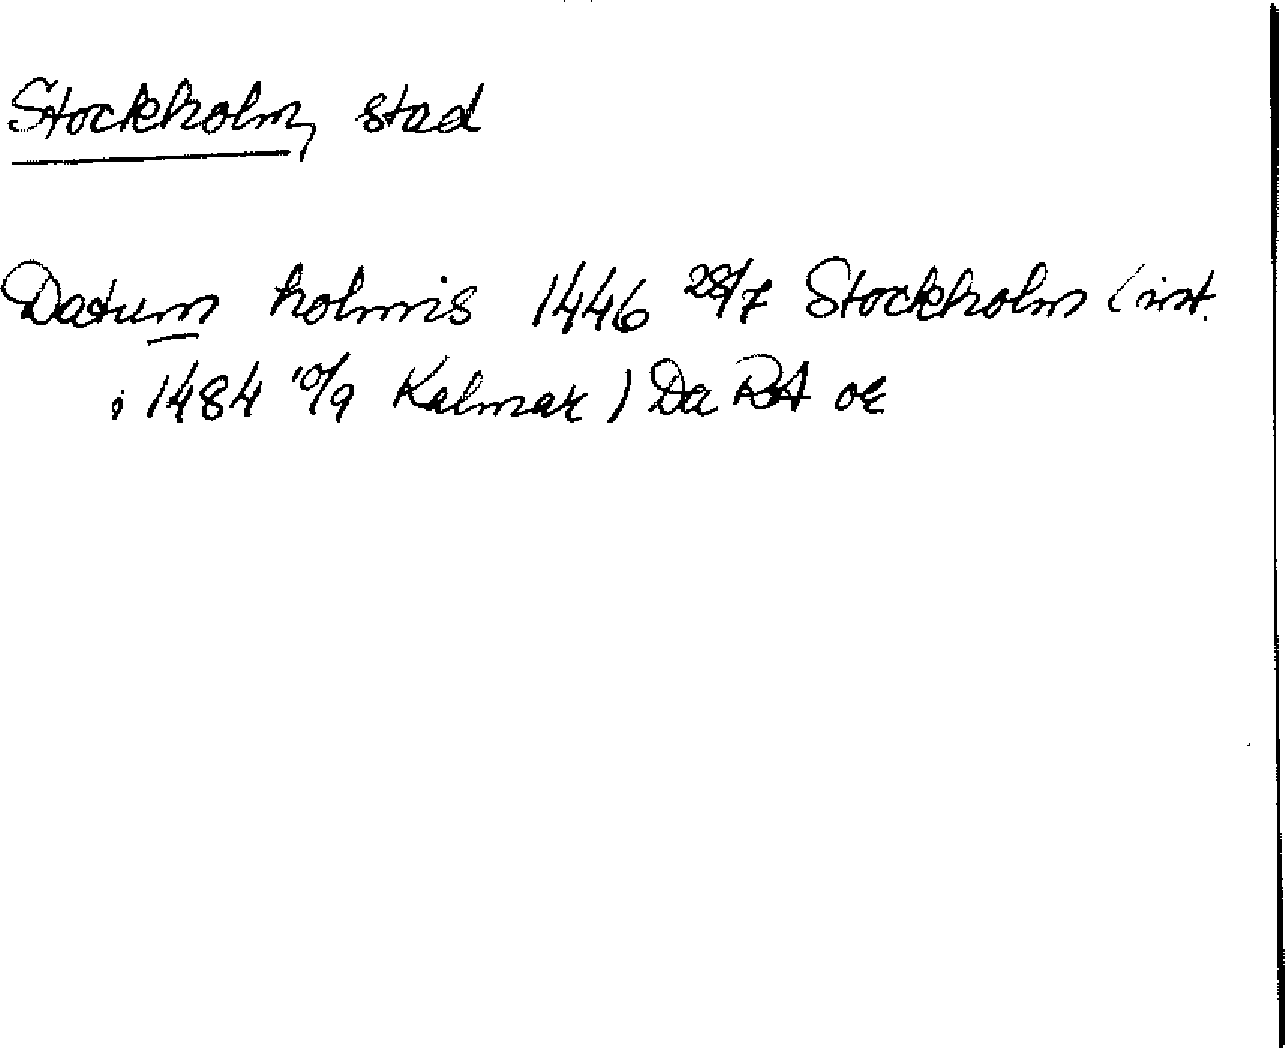 Stockholm, stad
Datum holmis 1446 28/7 Stockholm (int.
i 1484 10/9 Kalmar) Da RA or